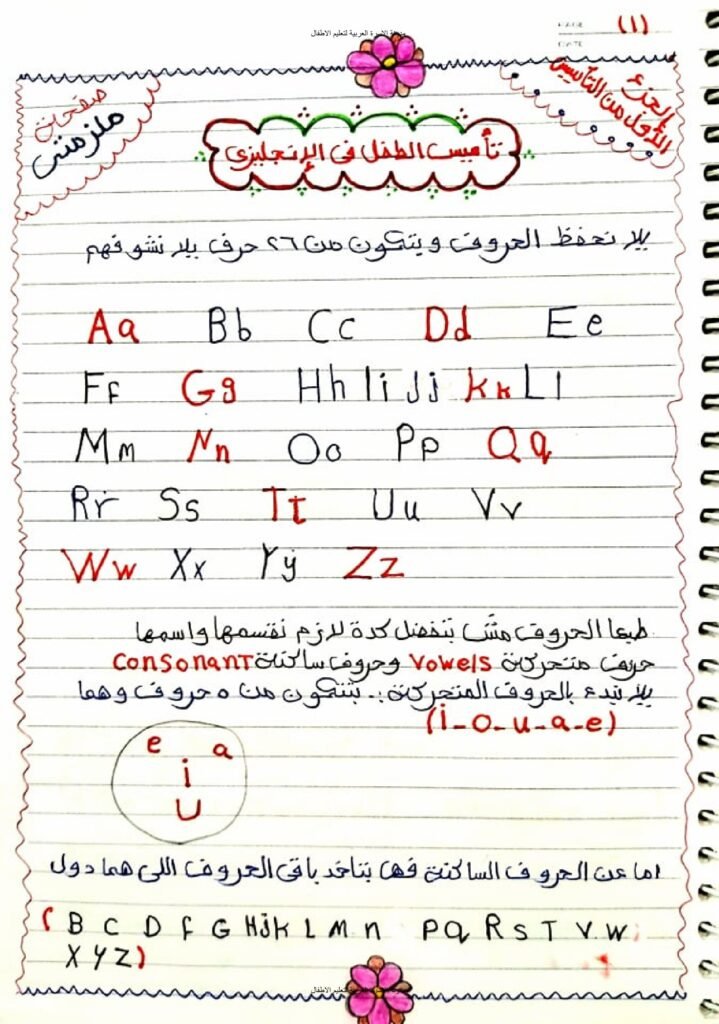 PAGE (١)
DATE
الجزء
الأول من التأسيس
صفحات
ملزمتى
تأسيس الطفل فى الإنجليزى
يلا نحفظ الحروف ويتكون من ٢٦ حرف يلا نشوفهم
Aa Bb Cc Dd Ee
Ff Gg Hh Ii Jj Kk Ll
Mm Nn Oo Pp Qq
Rr Ss Tt Uu Vv
Ww Xx Yy Zz
طبعا الحروف مش بتفضل كدة لازم نقسمها واسمها
حروف متحركة Vowels وحروف ساكنة Consonant
يلا نبدء بالحروف المتحركة :. بتتكون من ٥ حروف وهما
(i-o-u-a-e)
e a
i
U
اما عن الحروف الساكنة فها بتاخد باقى الحروف اللى هما دول
(B C D F G H j k L M n P q R S T V W
X Y Z)